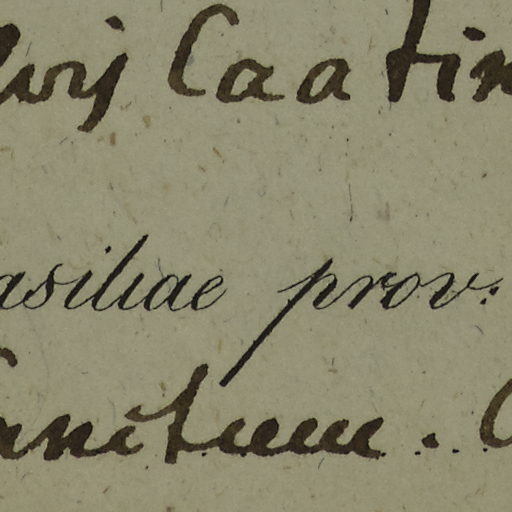 Caatin
asiliae prov.
anctum. C